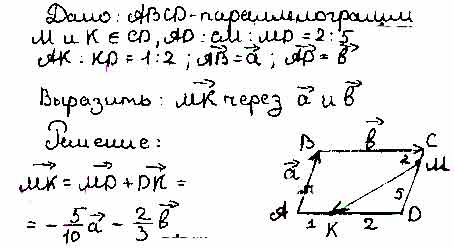 Дано: ABCD - параллелограмм
M и K ∈ CD, AD : CM : MD = 2 : 5
AK : KD = 1 : 2 ; AB = a ; AD = b
Выразить : MK через a и b
Решение :
MK = MD + DK =
= - 5/10 a - 2/3 b
B b C
2 M
a
5
A 1 K 2 D